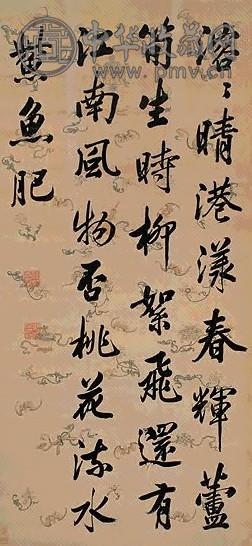 中华收藏网
www.pmv.cn
溶〻晴港漾春輝蘆
筍生時柳絮飛還有
江南風物否桃花流水
鮆魚肥